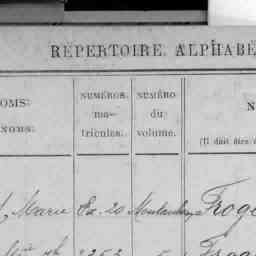 RÉPERTOIRE ALPHABÉ
NOMS:
NOMS.
NUMÉROS.
ma-
tricules.
NUMÉRO
du
volume.
N
(Il doit être
Marie Ex. 20 Montauban Frog
2252 5 Frog